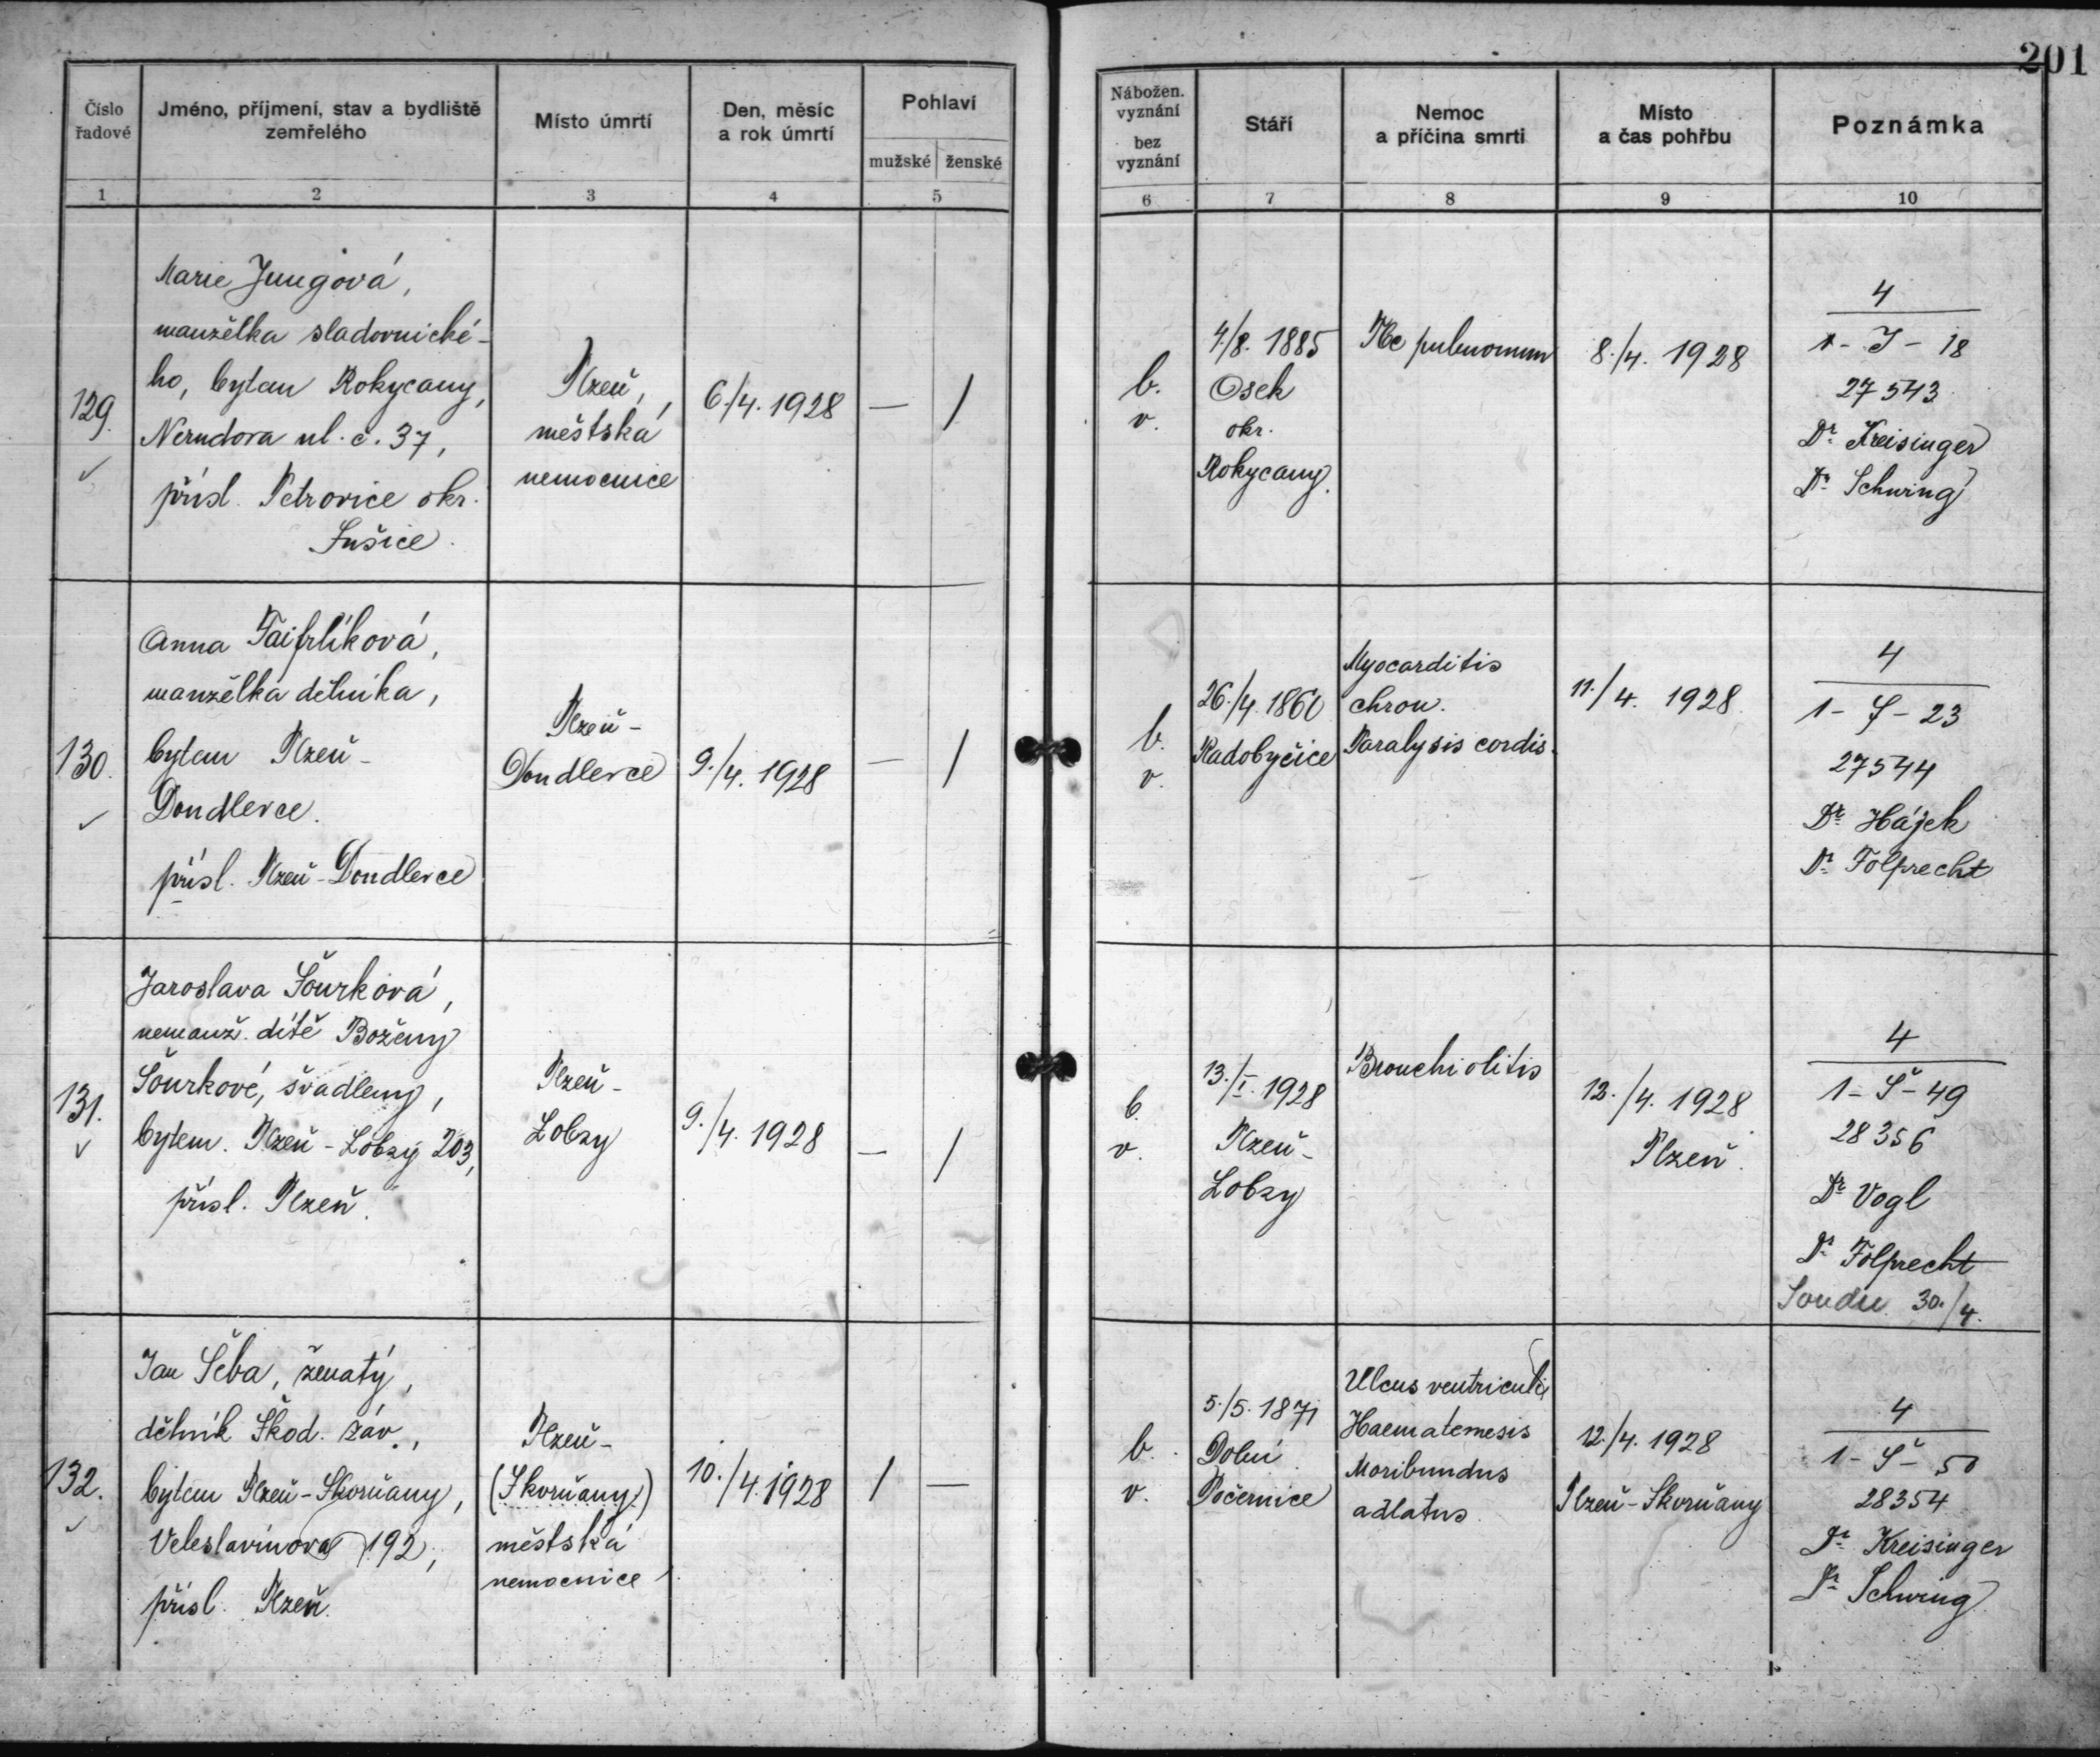 201
Číslo řadové
Jméno, příjmení, stav a bydliště zemřelého
Místo úmrtí
Den, měsíc a rok úmrtí
Pohlaví
mužské ženské
Nábožen. vyznání
bez vyznání
Stáří
Nemoc a příčina smrti
Místo a čas pohřbu
Poznámka
1 2 3 4 5 6 7 8 9 10
129.
Marie Jungová,
manželka sladovnické-
ho, bytem Rokycany,
Nerudova ul. č. 37,
přísl. Petrovice okr.
Sušice.
Plzeň,
městská
nemocnice
6./4. 1928
— /
b.
v.
4./8. 1885
Osek
okr.
Rokycany.
Tbc pulmonum
8./4. 1928
4
1 - J - 18
27543
Dr. Kreisinger
Dr. Schwing
130.
Anna Taifrlíková,
manželka dělníka,
bytem Plzeň -
Doudlevce.
přísl. Plzeň - Doudlevce
Plzeň -
Doudlevce
9./4. 1928
— /
b.
v.
26./4. 1860
Radobyčice
Myocarditis
chron.
Paralysis cordis.
11./4. 1928
4
1 - T - 23
27544
Dr. Hájek
Dr. Folprecht
131.
Jaroslava Šourková,
nemanž. dítě Boženy
Šourkové, švadleny,
bytem. Plzeň - Lobzy 203,
přísl. Plzeň.
Plzeň -
Lobzy
9./4. 1928
— /
b.
v.
13./I. 1928
Plzeň -
Lobzy
Bronchiolitis
12./4. 1928
Plzeň.
4
1 - Š - 49
28356
Dr. Vogl
Dr. Folprecht
Soudu 30./4.
132.
Jan Šeba, ženatý,
dělník Škod. záv.,
bytem Plzeň - Skvrňany,
Veleslavínova 192,
přísl. Plzeň.
Plzeň -
(Skvrňany)
městská
nemocnice
10./4. 1928
/ —
b.
v.
5./5. 1871
Dolní
Počernice
Ulcus ventriculi
Haematemesis
Moribundus
adlatus.
12./4. 1928
Plzeň - Skvrňany
4
1 - Š - 50
28354
Dr. Kreisinger
Dr. Schwing